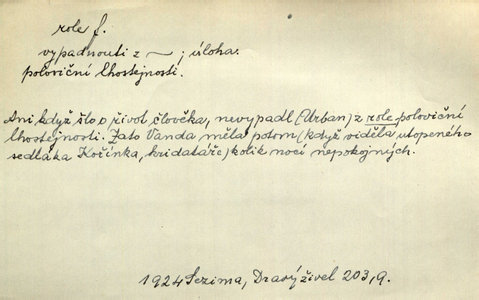 role f.
vypadnouti z ~ ; úloha
poloviční lhostejnosti.
Ani když šlo o život člověka, nevypadl (Urban) z role poloviční
lhostejnosti. Zato Vanda měla potom (když viděla utopeného
sedláka Kořínka, kridatáře) kolik nocí nepokojných.
1924 Sezima, Dravý živel 203, 9.